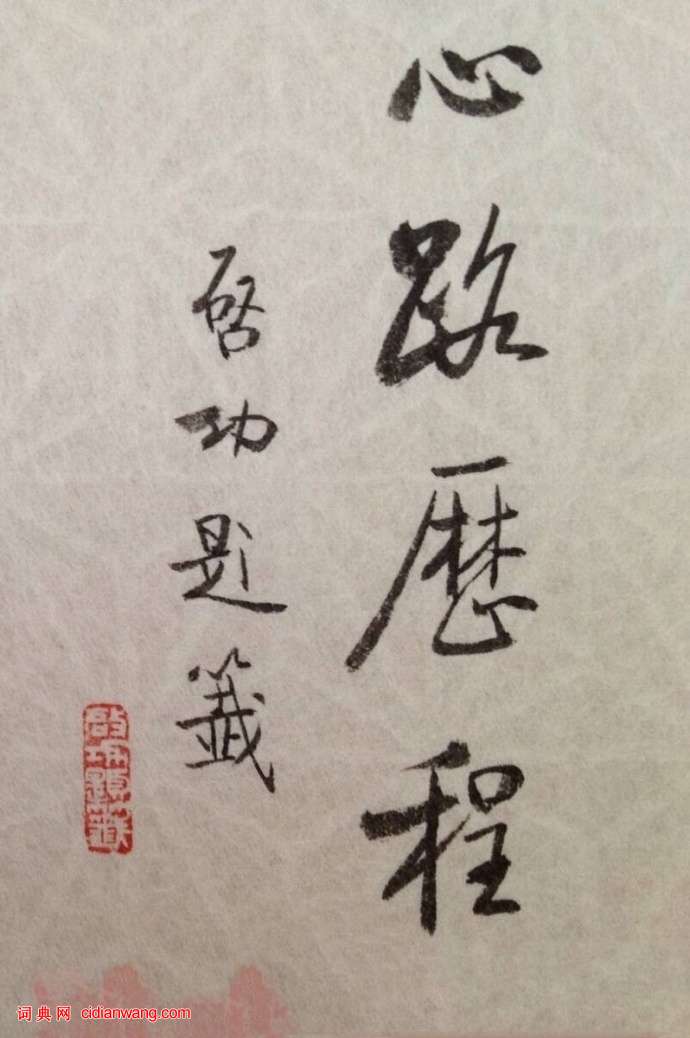 心路歷程
启功题籤
啟功題籤
词典网 cidianwang.com